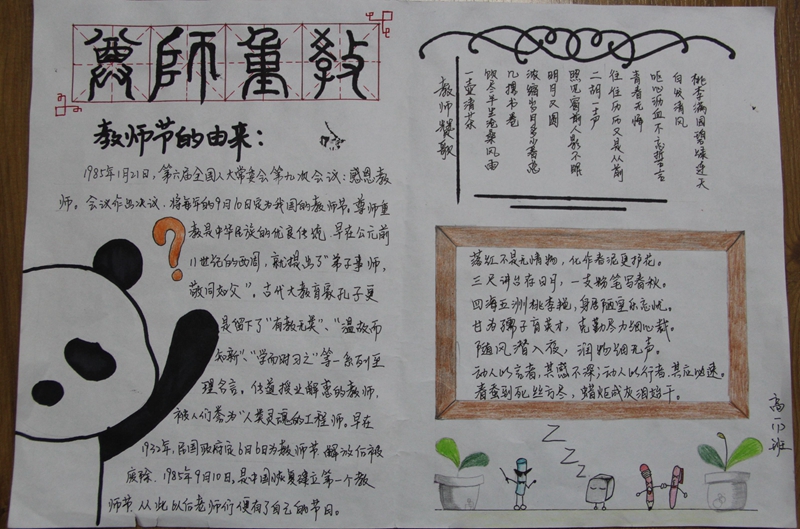 尊師重教
教师节的由来：
1985年1月21日，第六届全国人大常委会第九次会议：感恩教
师。会议作出决议，将每年的9月10日定为我国的教师节。尊师重
教是中华民族的优良传统，早在公元前
11世纪的西周，就提出了"弟子事师，
敬同如父"。古代大教育家孔子更
是留下了"有教无类"、"温故而
知新"、"学而时习之"等一系列至
理名言。传道授业解惑的教师，
被人们誉为"人类灵魂的工程师。早在
1932年，民国政府定6日6日为教师节，解放后被
废除，1985年9月10日，是中国恢复建立第一个教
师节，从此以后老师们便有了自己的节日。
教师赞歌
一壶清茶
饮尽半生沧桑风雨
几摞书卷
浓缩岁月多少春愁
明月又圆
照见窗前人影不眠
二胡一声
往往历历又是从前
青春无悔
呕心沥血不忘誓言
白发清风
桃李满园碧绿连天
落红不是无情物，化作春泥更护花。
三尺讲台存日月，一支粉笔写春秋。
四海五洲桃李艳，身居陋室乐忘忧。
甘为孺子育英才，克勤尽力细心裁。
随风潜入夜，润物细无声。
动人以言者，其感不深；动人以行者，其应必速。
春蚕到死丝方尽，蜡炬成灰泪始干。
Z
Z
Z
高一13班